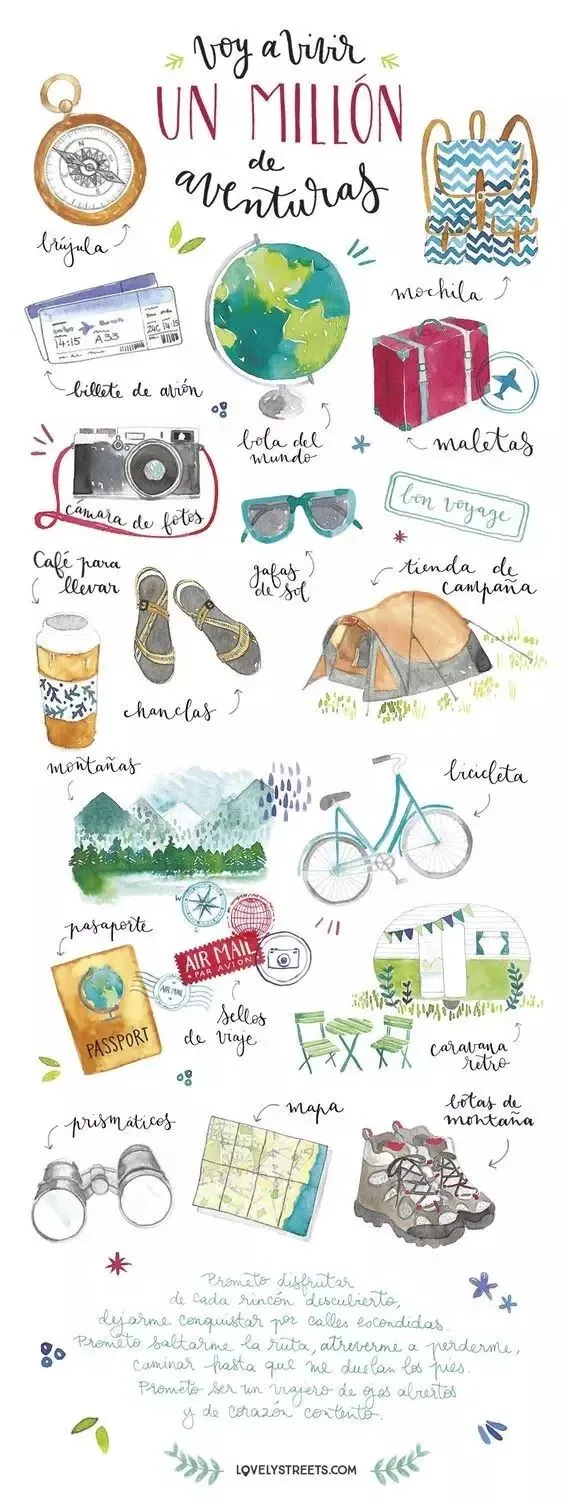 voy a vivir
UN MILLÓN
de
aventuras
brújula
mochila
14:15 A33
24C 14:15
billete de avión
bola del
mundo
maletas
cámara de fotos
gafas
de sol
bon voyage
Café para
llevar
chanclas
tienda de
campaña
montañas
bicicleta
pasaporte
PASSPORT
AIR MAIL
AIR MAIL
PAR AVION
sellos
de viaje
caravana
retro
prismáticos
mapa
botas de
montaña
Prometo disfrutar
de cada rincón descubierto,
dejarme conquistar por calles escondidas.
Prometo saltarme la ruta, atreverme a perderme,
caminar hasta que me duelan los pies.
Prometo ser un viajero de ojos abiertos
y de corazón contento.
LOVELYSTREETS.COM